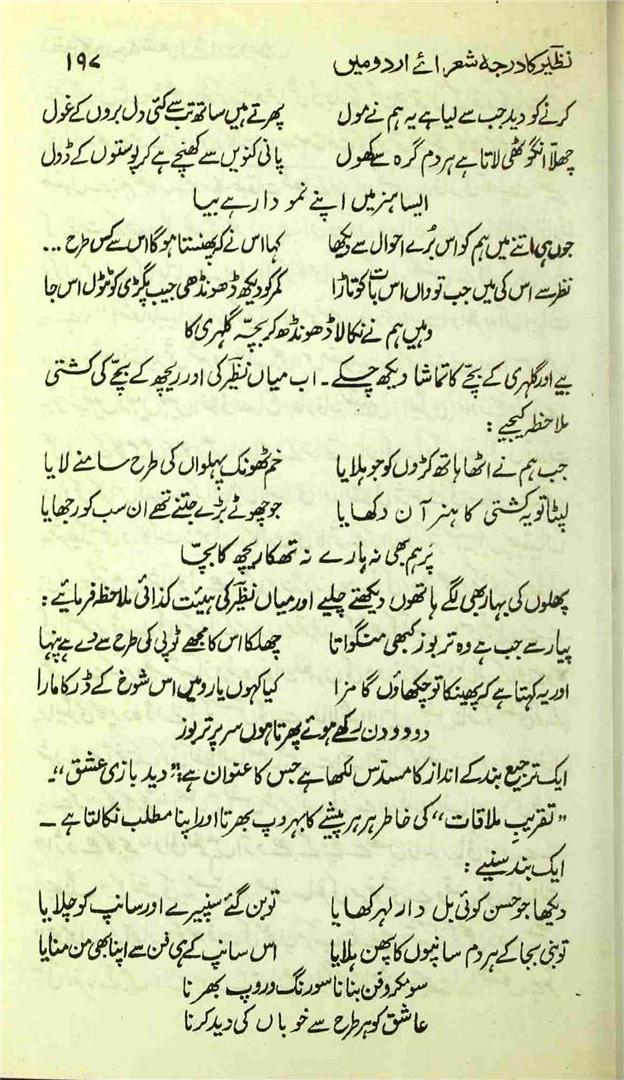 نظیر کا درجہ شعرائے اردو میں ۱۹۷
کرنے کو دید جب سے لیا ہے یہ ہم نے مول پھرتے ہیں ساتھ تب سے کئی دل بروں کے غول
چھلّا انگوٹھی لاتا ہے ہر دم گرہ سے کھول پانی کنویں سے کھنچے ہے کر پوستوں کے ڈول
ایسا ہنر میں اپنے نمودار ہے بیا
جوں ہی اتنے میں ہم کو اس بُرے احوال سے دیکھا کہا اس نے کہ پھنستا ہوگا اس سے کس طرح ...
نظر سے اس کی میں جب تو واں اس بات کو تاڑا کمر کو دیکھ ڈھونڈھی جیب پگڑی کو ٹٹول اس جا
وہیں ہم نے نکالا ڈھونڈھ کر بچّہ گلہری کا
بیے اور گلہری کے بچّے کا تماشا دیکھ چکے۔ اب میاں نظیر کی اور ریچھ کے بچّے کی کشتی
ملاحظہ کیجیے :
جب ہم نے اٹھا ہاتھ کڑوں کو جو ہلایا خم ٹھونک پہلواں کی طرح سامنے لایا
لپٹا تو یہ کشتی کا ہنر آن دکھایا جو چھوٹے بڑے جتنے تھے ان سب کو رجھایا
پَر ہم بھی نہ ہارے نہ تھکا ریچھ کا بچّا
پھلوں کی بہار بھی لگے ہاتھوں دیکھتے چلیے اور میاں نظیر کی ہیئت کذائی ملاحظہ فرمائیے :
پیار سے جب ہے وہ تربوز کبھی منگواتا چھلکا اس کا مجھے ٹوپی کی طرح سے دے ہے پنہا
اور یہ کہتا ہے کہ پھینکا تو چکھاؤں گا مزا کیا کہوں یارو میں اس شوخ کے ڈر کا مارا
دو دو دن رکھے ہوئے پھرتا ہوں سر پر تربوز
ایک ترجیع بند کے انداز کا مسدّس لکھا ہے جس کا عنوان ہے : ”دید بازیِ عشق“۔
”تقریبِ ملاقات“ کی خاطر ہر ہر پیشے کا بہروپ بھرتا اور اپنا مطلب نکالتا ہے ۔
ایک بند سنیے :
دیکھا جو حسن کوئی بل دار لہر کھایا تو بن گئے سنپیرے اور سانپ کو چلایا
تونبی بجا کے ہر دم سانپوں کا پھن ہلایا اس سانپ کے ہی فن سے اپنا بھی من منایا
سو مکر و فن بنانا سو رنگ و روپ بھرنا
عاشق کو ہر طرح سے خوباں کی دید کرنا